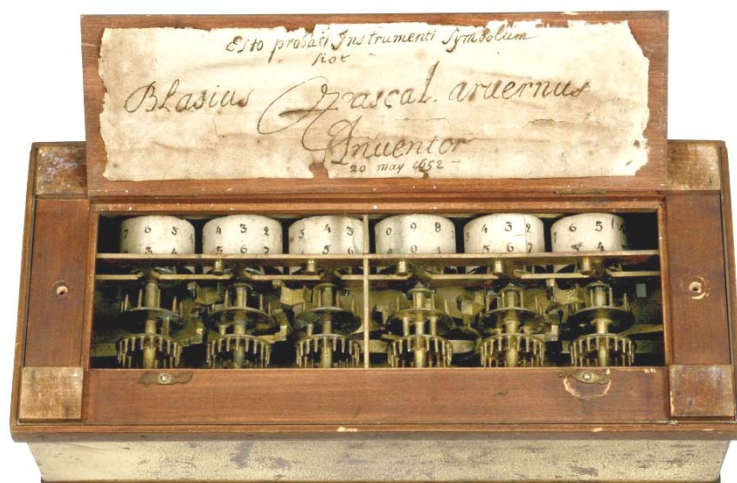 Esto probati Instrumenti Symbolum
hoc
Blasius Pascal. arvernus
Inventor
20 may 1652
7 6 5 4 3 2 3 4 3 0 9 8 5 4 3 2 7 6 5